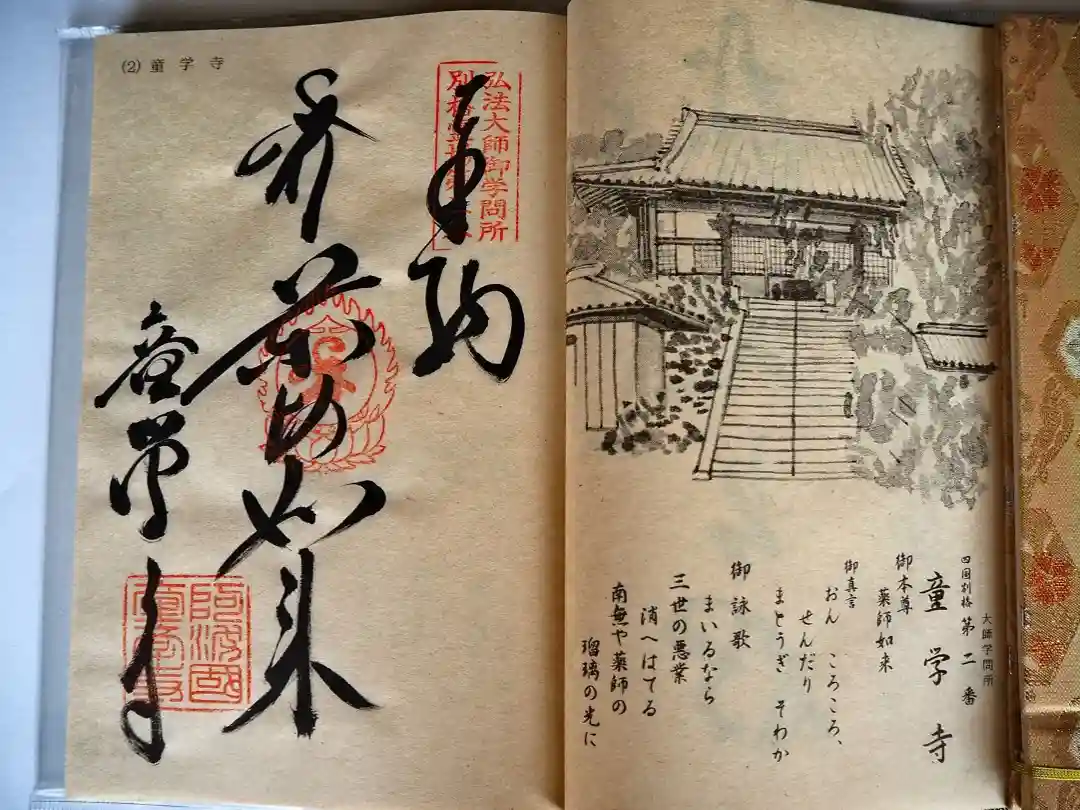 (2) 童学寺
奉納
弘法大師御学問所
薬師如来
童学寺
阿波國
童学寺
大師学問所
四国別格 第二番
童学寺
御本尊
薬師如来
御真言
おん ころころ、
せんだり
まとうぎ そわか
御詠歌
まいるなら
三世の悪業
消へはてる
南無や薬師の
瑠璃の光に